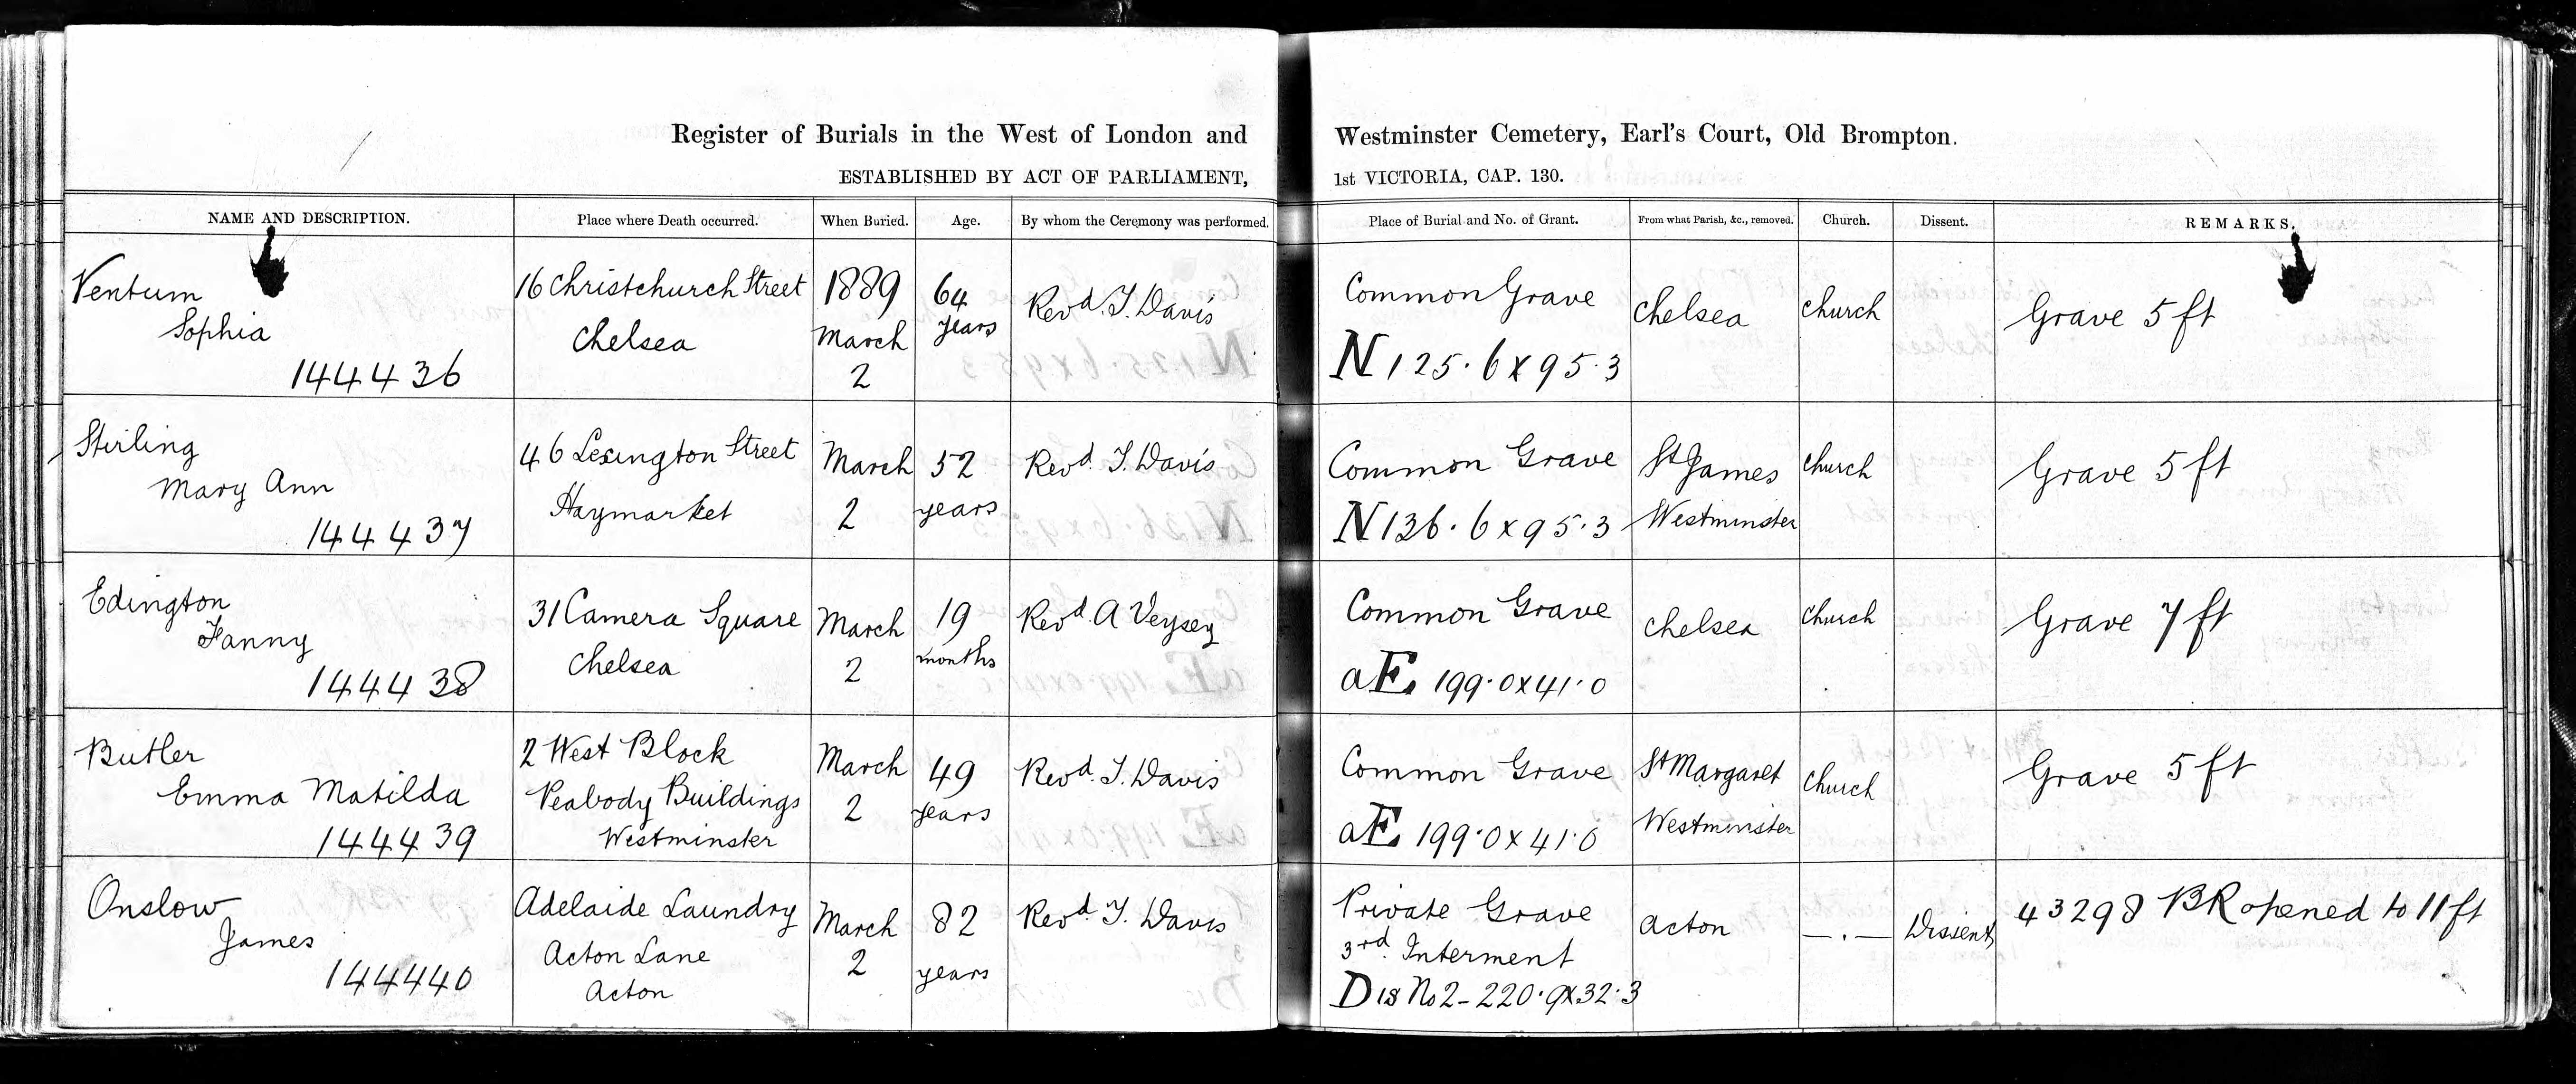 Register of Burials in the West of London and Westminster Cemetery, Earl's Court, Old Brompton.
ESTABLISHED BY ACT OF PARLIAMENT, 1st VICTORIA, CAP. 130.
NAME AND DESCRIPTION. Place where Death occurred. When Buried. Age. By whom the Ceremony was performed. Place of Burial and No. of Grant. From what Parish, &c., removed. Church. Dissent. REMARKS.
Ventum
Sophia
144436
16 Christchurch Street
Chelsea
1889
March
2
64
years
Revd. T. Davis
Common Grave
N 125.6 x 95.3
Chelsea
Church
Grave 5 ft
Stirling
Mary Ann
144437
46 Lexington Street
Haymarket
March
2
52
years
Revd. T. Davis
Common Grave
N 136.6 x 95.3
St James
Westminster
Church
Grave 5 ft
Edington
Fanny
144438
31 Camera Square
Chelsea
March
2
19
months
Revd. A Veysey
Common Grave
aE 199.0 x 41.0
Chelsea
Church
Grave 7 ft
Butler
Emma Matilda
144439
2 West Block
Peabody Buildings
Westminster
March
2
49
years
Revd. T. Davis
Common Grave
aE 199.0 x 41.0
St Margaret
Westminster
Church
Grave 5 ft
Onslow
James
144440
Adelaide Laundry
Acton Lane
Acton
March
2
82
years
Revd. T. Davis
Private Grave
3rd Interment
Dis No 2 - 220.9 x 32.3
Acton
— . —
Dissent
43298 BR opened to 11 ft